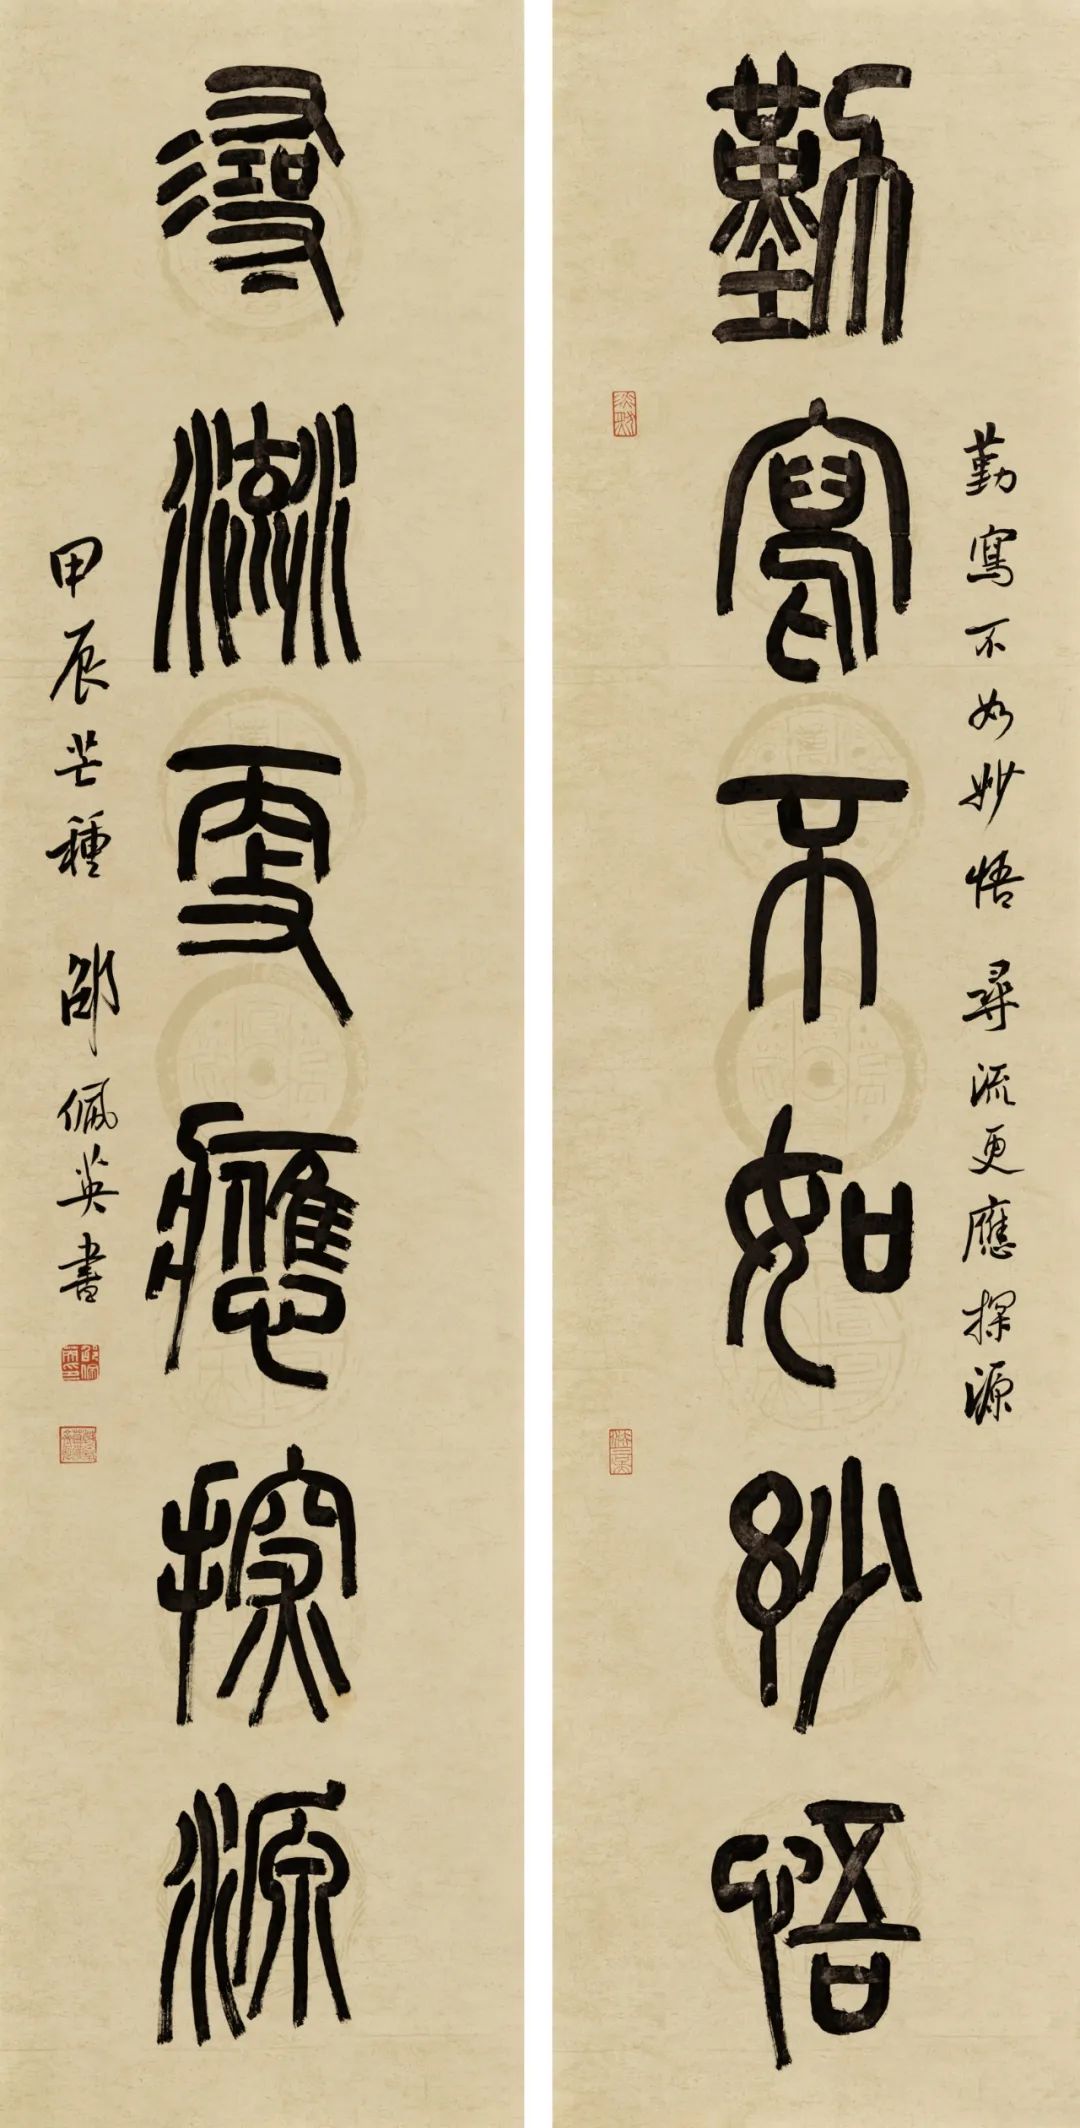 勤寫不如妙悟
勤寫不如妙悟 尋流更應探源
尋流更應探源
甲辰芒種 邵佩英書